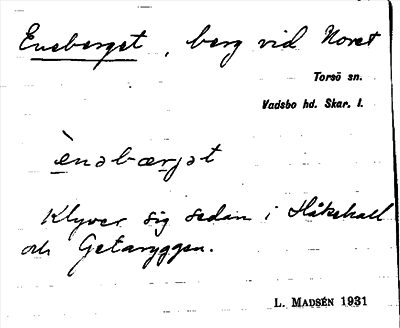 Eneberget, berg vid Noret
Torsö sn.
Vadsbo hd. Skar. l.
ènəbærjət
Klyver sig sedan i Håkehall
och Getaryggen.
L. MADSÉN 1931